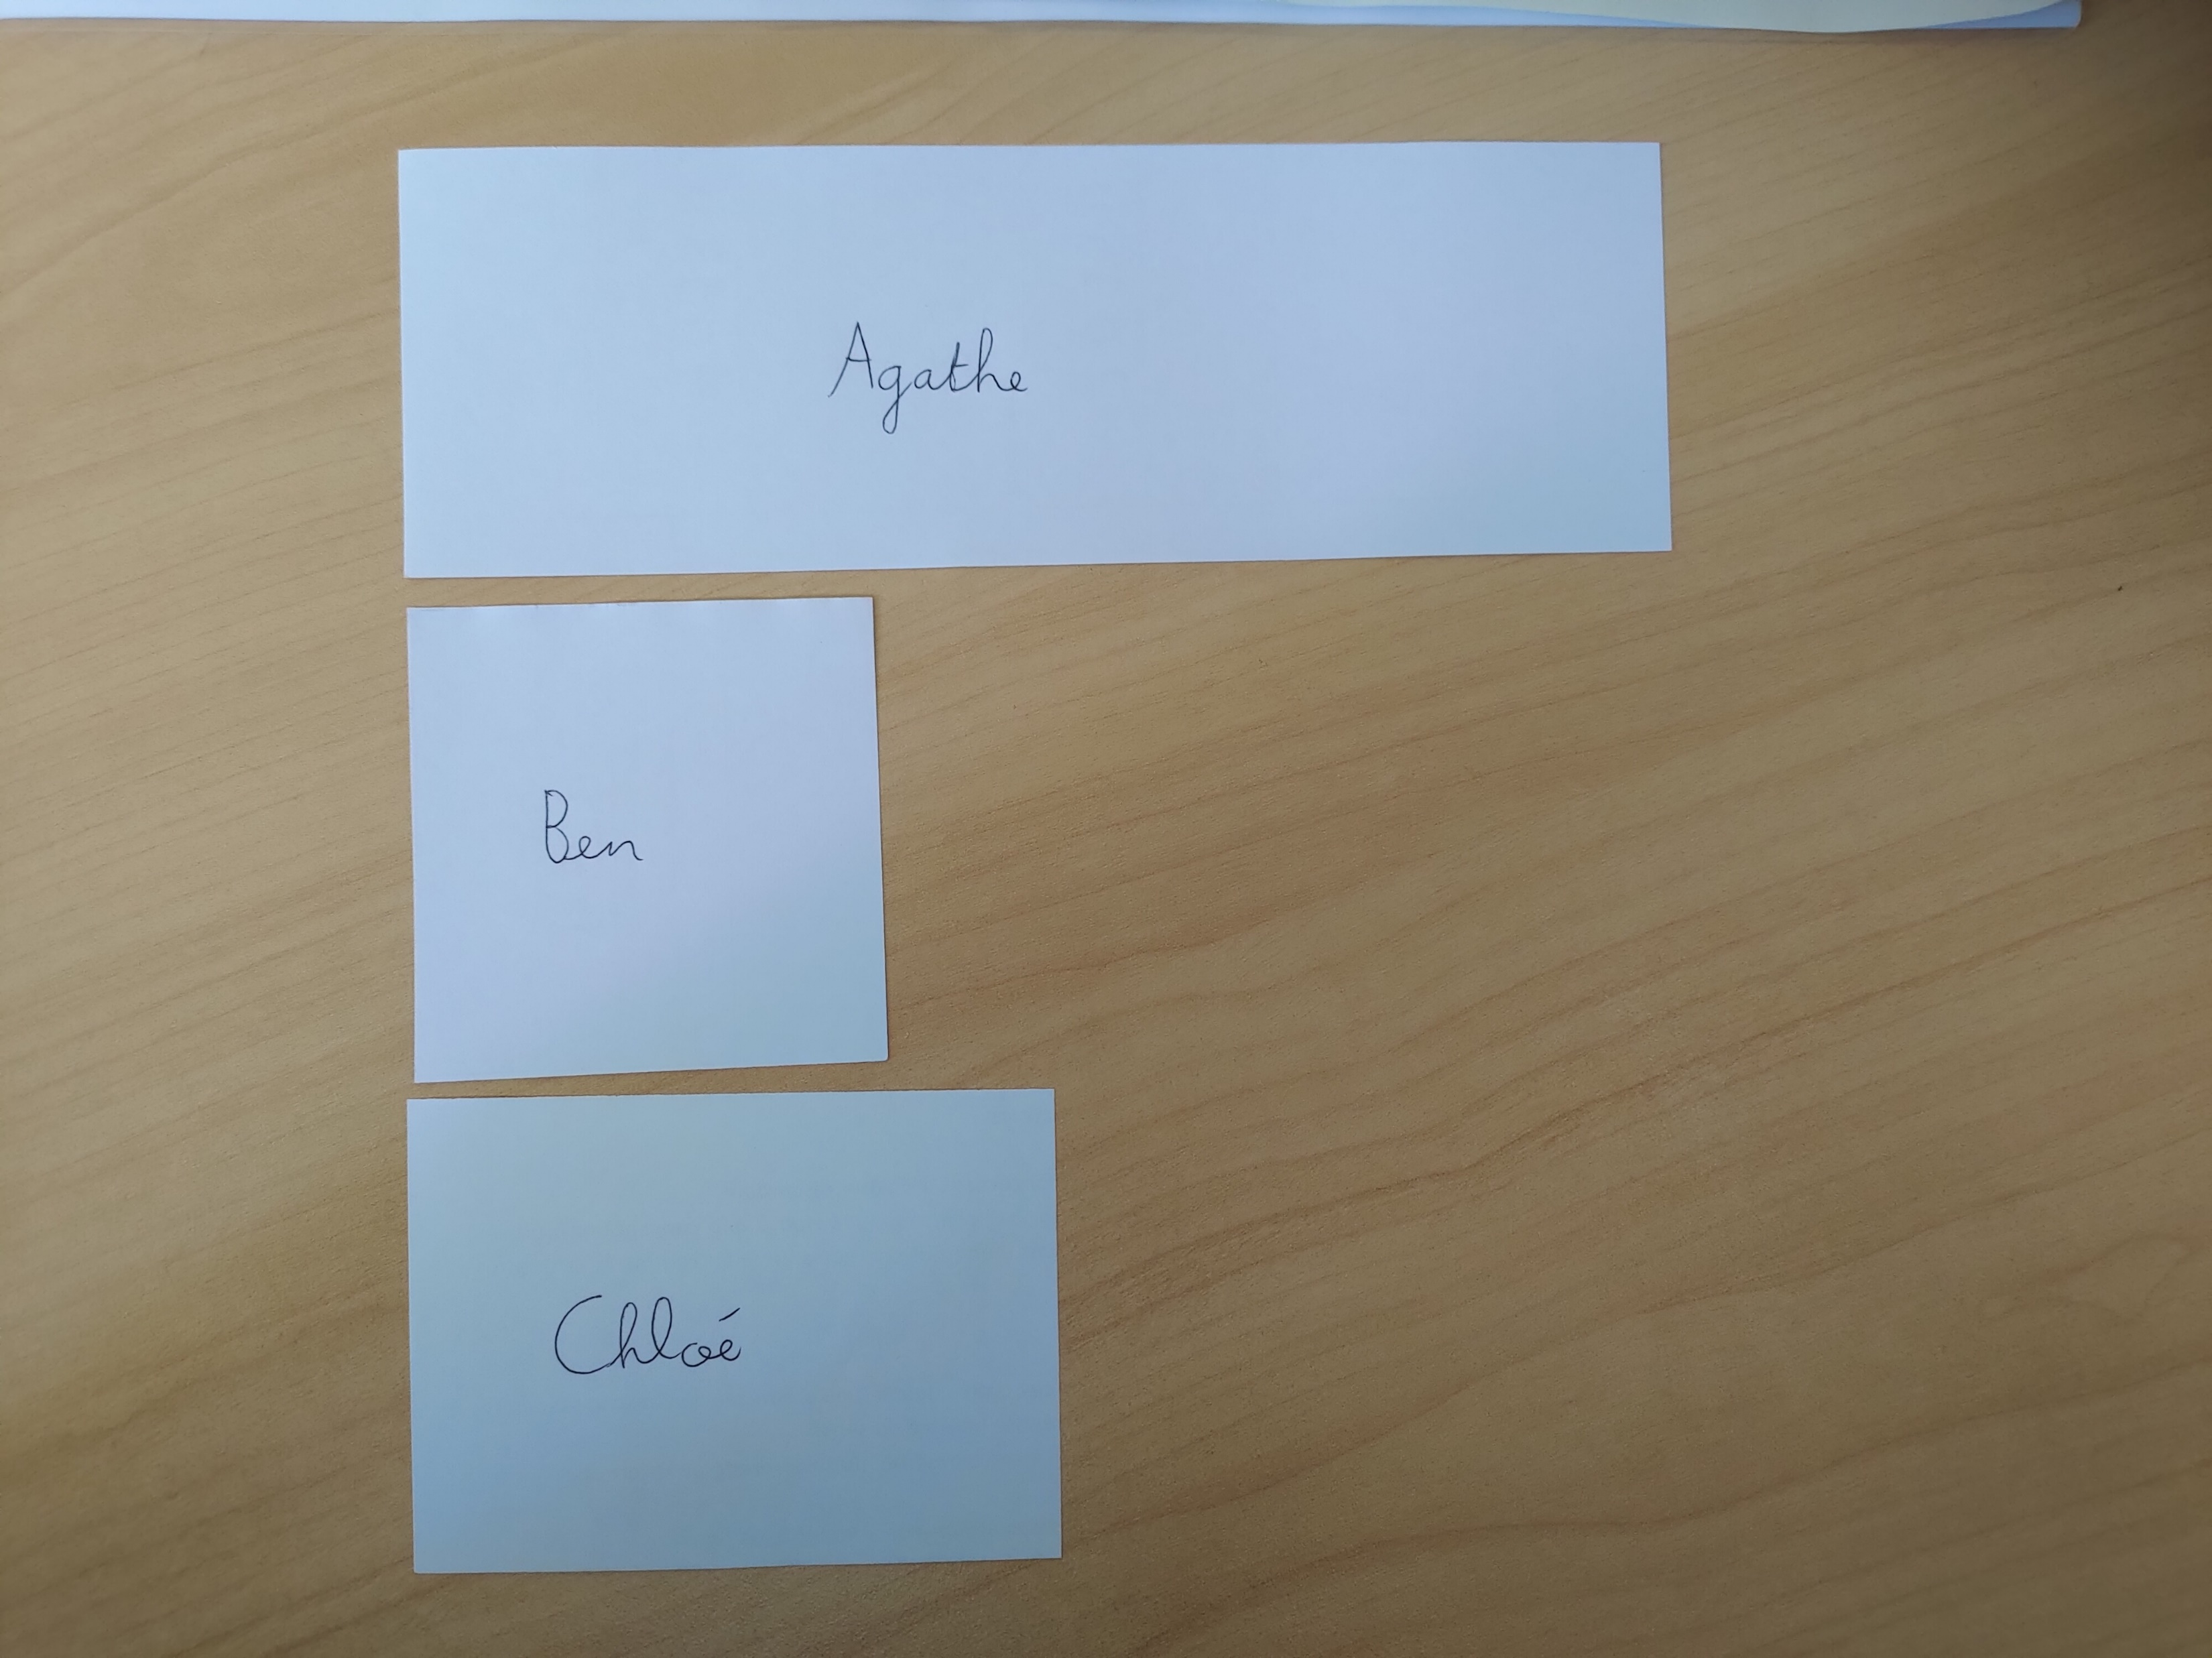 Agathe
Ben
Chloé